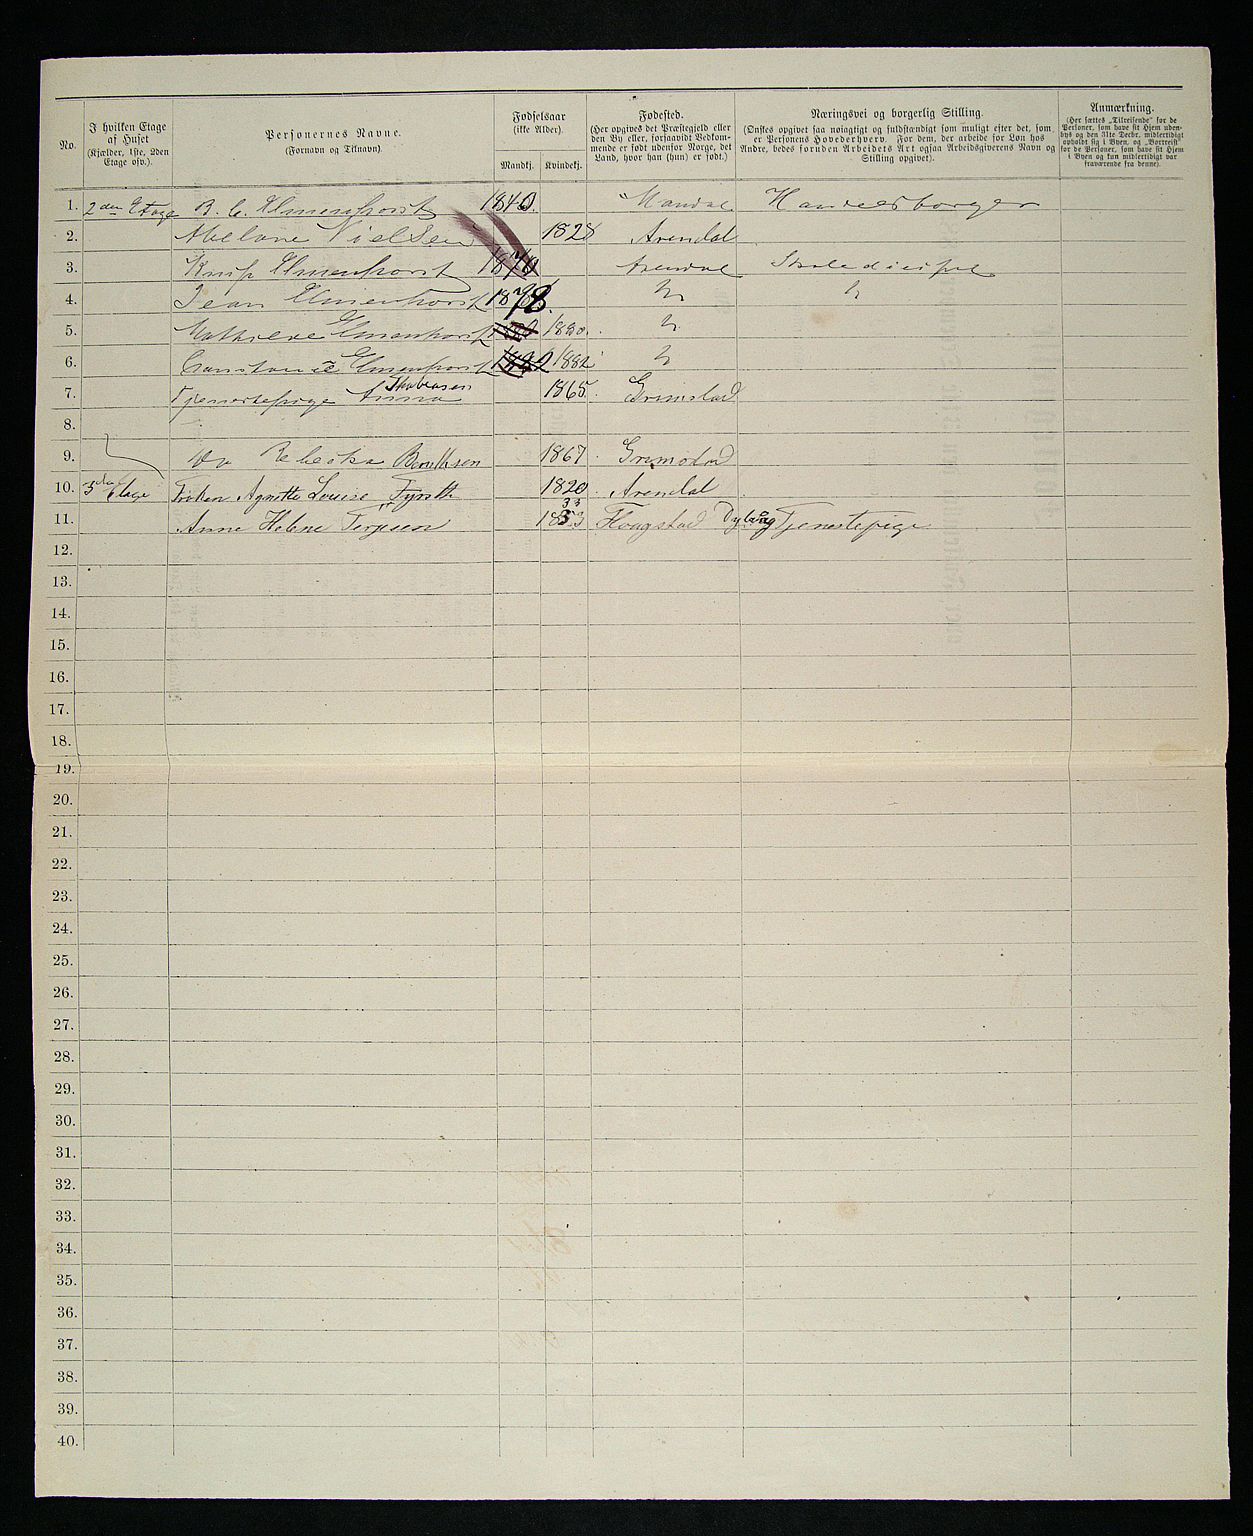 No.
I hvilken Etage
af Huset
(Kjælder, 1ste, 2den
Etage osv.).
Personernes Navne.
(Fornavn og Tilnavn).
Fødselsaar
(ikke Alder).
Mandkj.
Kvindekj.
Fødested.
(Her opgives det Præstegjeld eller
den By eller, forsaavidt Vedkom-
mende er født udenfor Norge, det
Land, hvor han (hun) er født.)
Næringsvei og borgerlig Stilling.
(Ønskes opgivet saa nøiagtigt og fuldstændigt som muligt efter det, som
er Personens Hovederhverv. For dem, der arbeide for Løn hos
Andre, bedes foruden Arbeidets Art ogsaa Arbeidsgiverens Navn og
Stilling opgivet).
Anmærkning.
(Her sættes „Tilreisende“ for de
Personer, som have sit Hjem uden-
bys og den 31te Decbr. midlertidigt
opholdt sig i Byen, og „Bortreist“
for de Personer, som have sit Hjem
i Byen og kun midlertidigt var
fraværende fra denne).
1. 2den Etage B. C. Elmenhorst 1840. Mandal Handelsborger
2. Nielsen 1828 Arendal
3. Knip Elmenhorst 1876 Arendal Skoledicipel
4. Jean Elmenhorst 1878. " "
5. Mathilde Elmenhorst 1880. "
6. Constance Elmenhorst 1882 "
7. Tjenestepige Anna 1865. Grimstad
8.
9. Do Rebekka Bentsen 1867. Grimstad
10. 3die Etage Frøken Agnette Louise Fyrsth 1820. Arendal
11. Anne Helene Terjesen 1833 Flougstad Dybvåg Tjenestepige
12.
13.
14.
15.
16.
17.
18.
19.
20.
21.
22.
23.
24.
25.
26.
27.
28.
29.
30.
31.
32.
33.
34.
35.
36.
37.
38.
39.
40.